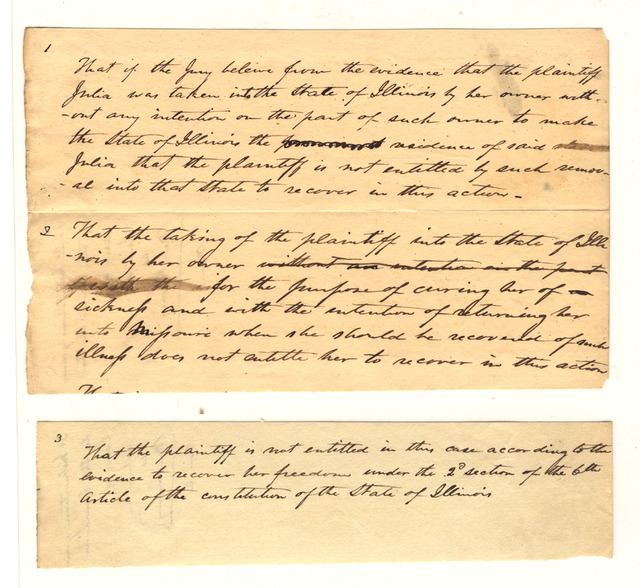 1
That if the Jury beleive from the evidence that the plaintiff
Julia was taken into the State of Illinois by her owner with-
-out any intention on the part of such owner to make
the State of Illinois the residence of said
Julia that the plaintiff is not entitled by such remov-
-al into that State to recover in this action -
2 That the taking of the plaintiff into the State of Illi
-nois by her owner without an intention on the part
for the purpose of curring her of a
sickness and with the intention of returning her
into Missouri when she should be recovered of such
illness does not entitle her to recover in this action
3
That the plaintiff is not entitled in this case according to the
evidence to recover her freedom under the 2d section of the 6th
Article of the constitution of the State of Illinois